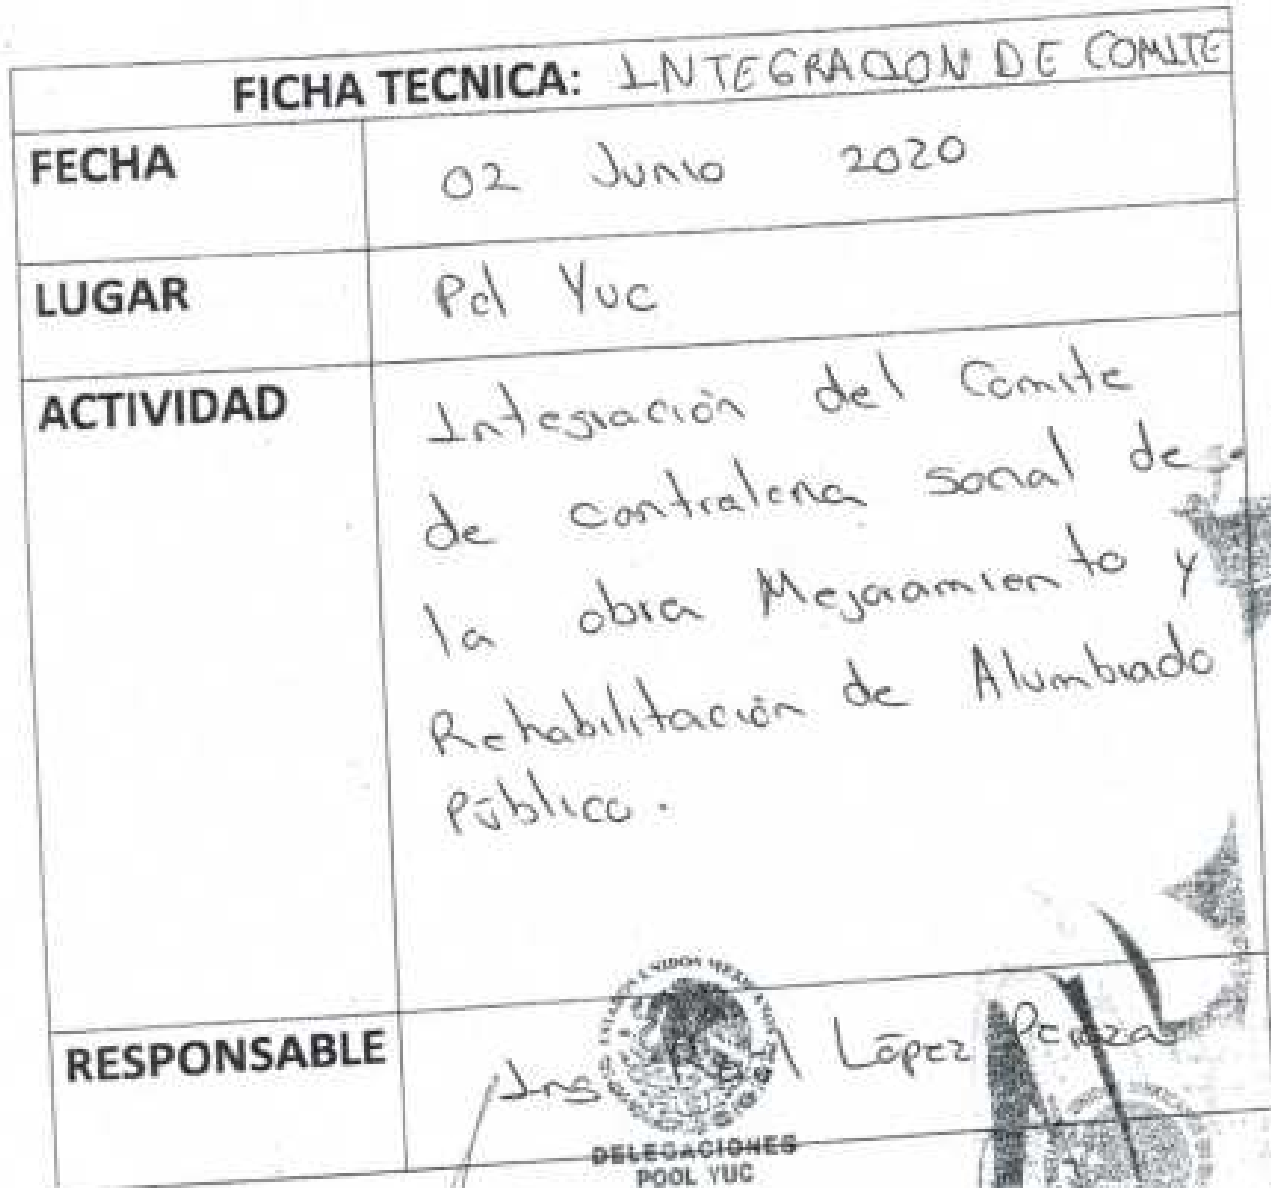 FICHA TECNICA: INTEGRACION DE COMITE
FECHA
02 Junio 2020
LUGAR
Pol Yuc
ACTIVIDAD
Integración del Comite
de contraloria social de
la obra Mejoramiento y
Rehabilitación de Alumbrado
Público.
RESPONSABLE
Ing López Peraza
DELEGACIONES
POOL YUC